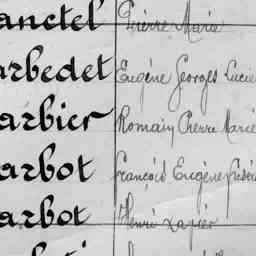 anctel Pierre Marie
arbedet Eugène Georges Lucie
arbier Romain Pierre Marie
arbot François Eugène Frédéri
arbot Henri Xavier